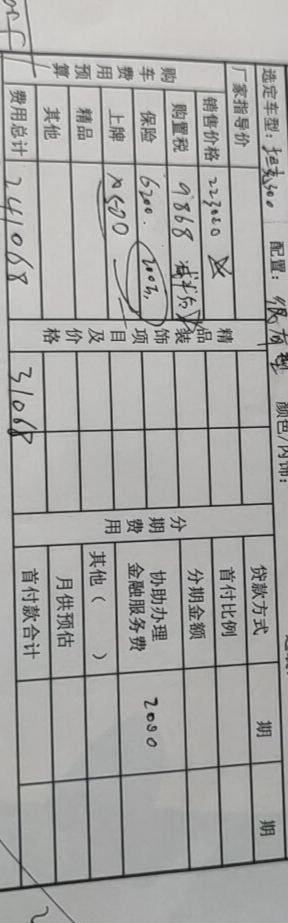 选定车型：坦克300 配置： 颜色/内饰：
厂家指导价
购车费用预算
销售价格 223000
购置税 9868 减半后
保险 6200. 200万,
上牌 1500
精品
其他
费用总计 241068
精品装饰项目及价格
31068
分期费用
贷款方式 期 期
首付比例
分期金额
协助办理金融服务费 2000
其他（ ）
月供预估
首付款合计